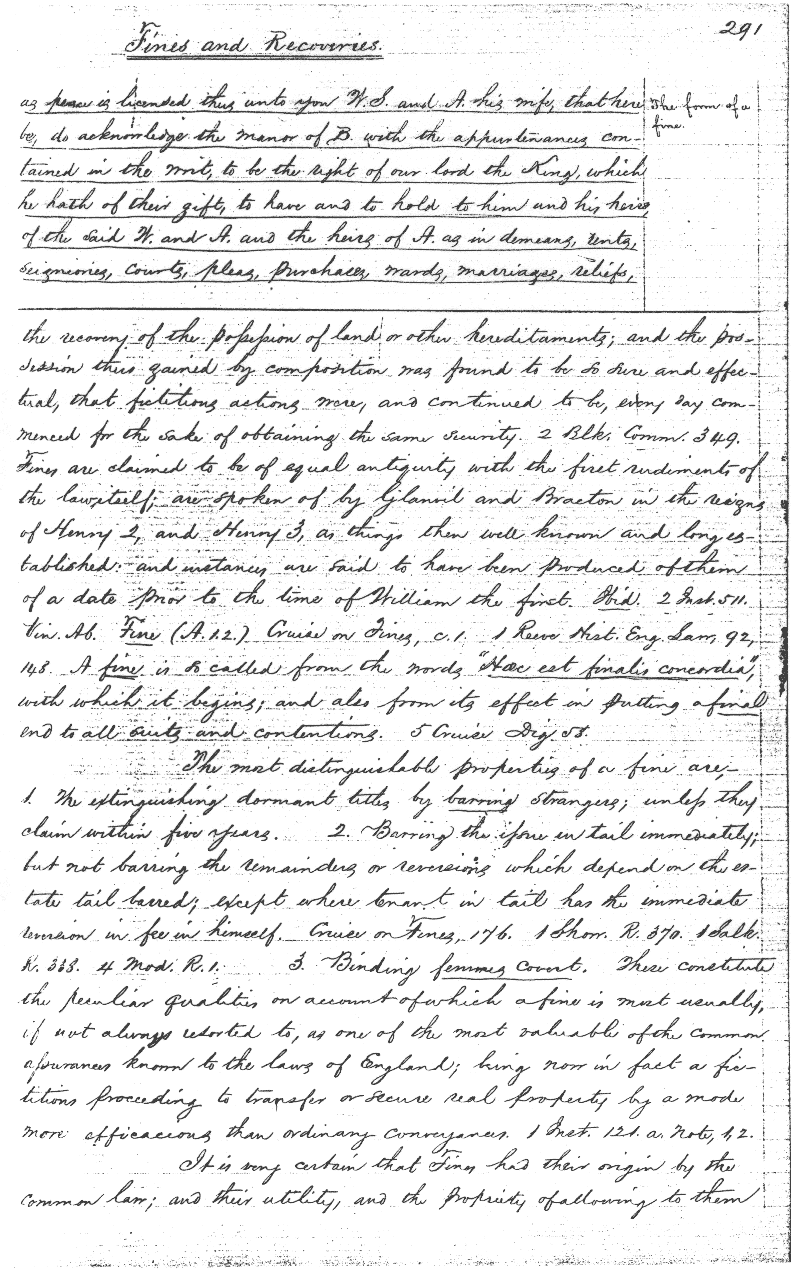 291
Fines and Recoveries.
as peace is licensed thus unto you W. S. and A. his wife, that here
be, do acknowledge the manor of B. with the appurtenances con-
tained in the writ, to be the right of our lord the King, which
he hath of their gift, to have and to hold to him and his heirs,
of the said W. and A. and the heirs of A. as in demeans, rents,
seigniories, courts, pleas, purchases, wards, marriages, reliefs,
The form of a
fine.
the recovery of the possession of land or other hereditaments; and the pos-
session thus gained by composition was found to be so sure and effec-
tual, that fictitious actions were, and continued to be, every day com-
menced for the sake of obtaining the same security. 2 Blk. Comm. 349.
Fines are claimed to be of equal antiquity with the first rudiments of
the law itself; are spoken of by Glanvil and Bracton in the reigns
of Henry 2, and Henry 3, as things then well known and long es-
tablished: and instances are said to have been produced of them
of a date prior to the time of William the first. Ibid. 2 Inst. 511.
Vin. Ab. Fine (A.1.2.) Cruise on Fines, c. 1. 1 Reeve Hist. Eng. Law, 92,
148. A fine is so called from the words "Hæc est finalis concordia",
with which it begins; and also from its effect in putting a final
end to all suits and contentions. 5 Cruise Dig.
The most distinguishable properties of a fine are,-
1. The extinguishing dormant titles by barring strangers; unless they
claim within five years. 2. Barring the issue in tail immediately;
but not barring the remainders or reversions which depend on the es-
tate tail barred; except where tenant in tail has the immediate
reversion in fee in himself. Cruise on Fines, 176. 1 Show. R. 370. 1 Salk.
R. 338. 4 Mod. R. 1. 3. Binding femmes covert. These constitute
the peculiar qualities on account of which a fine is most usually,
if not always resorted to, as one of the most valuable of the common
assurances known to the laws of England; being now in fact a fic-
titious proceeding to transfer or secure real property by a mode
more efficacious than ordinary conveyances. 1 Inst. 121. a. Note, 1, 2.
It is very certain that Fines had their origin by the
common law; and their utility, and the propriety of allowing to them